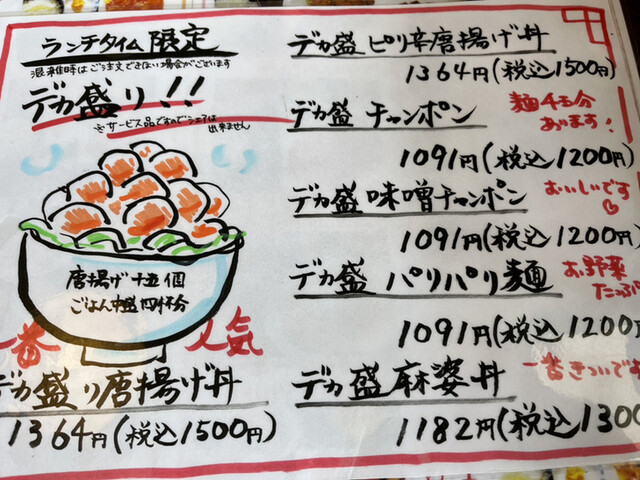 ランチタイム限定
混雑時はご注文できない場合がございます
デカ盛り!!
※サービス品ですのでシェアは
出来ません
唐揚げ十五個
ごはん中盛四杯分
一番人気
デカ盛り唐揚げ丼
1364円(税込1500円)
デカ盛ピリ辛唐揚げ丼
1364円(税込1500円)
デカ盛チャンポン
麺4玉分
あります!
1091円(税込1200円)
デカ盛味噌チャンポン
おいしいです♡
1091円(税込1200円)
デカ盛パリパリ麺
お野菜
たっぷり
1091円(税込1200円
デカ盛麻婆丼
一番きついです
1182円(税込1300